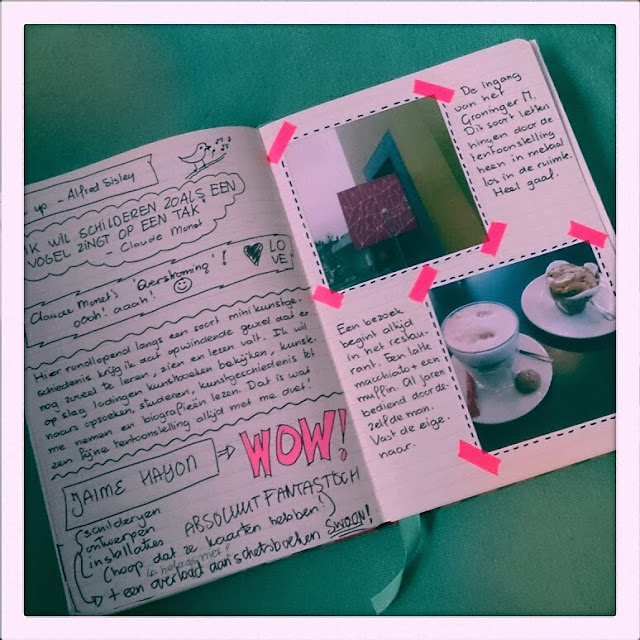 - up - Alfred Sisley
IK WIL SCHILDEREN ZOALS EEN
VOGEL ZINGT OP EEN TAK'
- Claude Monet
Claude Monet's 'Overstroming'!
oooh! aaah!
LO
VE
Hier rondlopend langs een soort mini kunstge-
schiedenis krijg ik dat opwindende gevoel dat er
nog zoveel te leren, zien en lezen valt. Ik wil
op slag ladingen kunstboeken bekijken, kunste-
naars opzoeken, studeren, kunstgeschiedenis tot
me nemen en biografieën lezen. Dat is wat
een fijne tentoonstelling altijd met me doet!
JAIME HAYON
WOW!
schilderijen
ontwerpen
installaties
ABSOLUUT FANTASTOCH
(hoop dat ze kaarten hebben!)
helaas niet!
+ een overload aan schetsboeken SWOON!
De ingang
van het
Groninger M.
Dit soort letters
hingen door de
tentoonstelling
heen in metaal
los in de ruimte.
Heel gaaf.
Een bezoek
begint altijd
in het restau-
rant. Een latte
macchiato + een
muffin. Al jaren
bediend door de-
zelfde man.
Vast de eige-
naar.